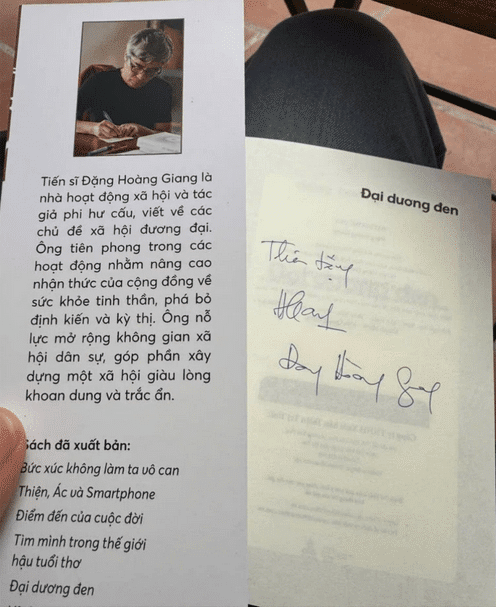 Tiến sĩ Đặng Hoàng Giang là
nhà hoạt động xã hội và tác
giả phi hư cấu, viết về các
chủ đề xã hội đương đại.
Ông tiên phong trong các
hoạt động nhằm nâng cao
nhận thức của cộng đồng về
sức khỏe tinh thần, phá bỏ
định kiến và kỳ thị. Ông nỗ
lực mở rộng không gian xã
hội dân sự, góp phần xây
dựng một xã hội giàu lòng
khoan dung và trắc ẩn.
Sách đã xuất bản:
Bức xúc không làm ta vô can
Thiện, Ác và Smartphone
Điểm đến của cuộc đời
Tìm mình trong thế giới
hậu tuổi thơ
Đại dương đen
Đại dương đen
Thân tặng
Đặng Hoàng Giang